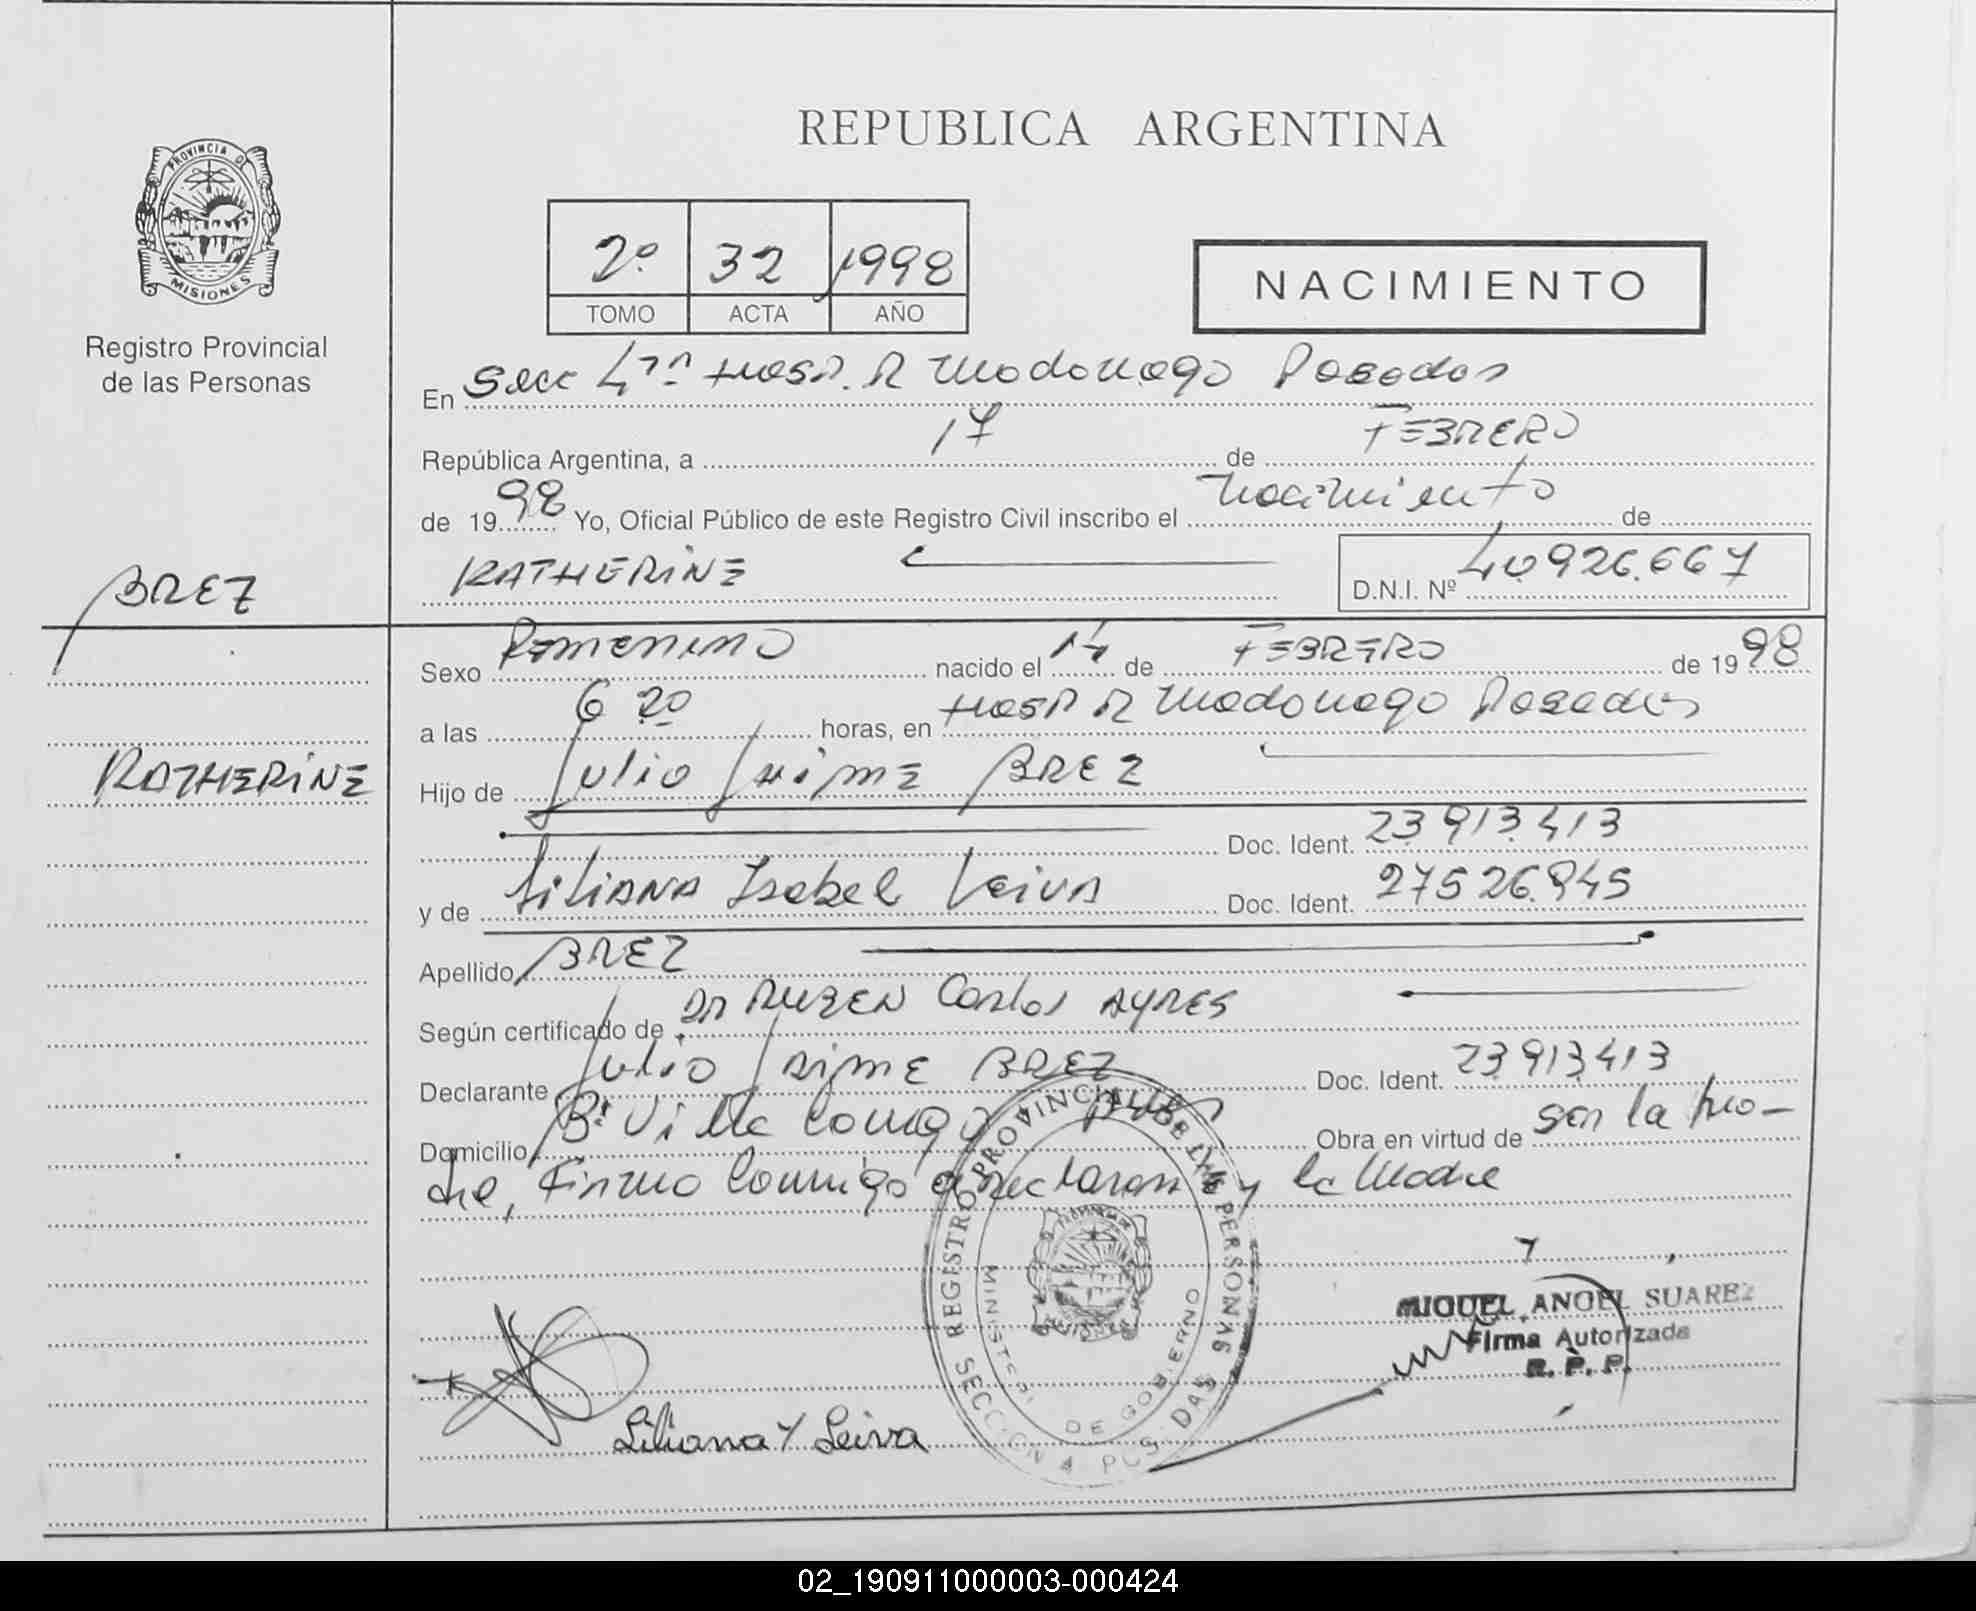 REPUBLICA ARGENTINA
PROVINCIA DE
MISIONES
Registro Provincial
de las Personas
2º 32 1998
TOMO ACTA AÑO
NACIMIENTO
En Secc 4ta Hosp. R Madariaga Posadas
República Argentina, a 17 de FEBRERO
de 1998 Yo, Oficial Público de este Registro Civil inscribo el nacimiento de
KATHERINE D.N.I. Nº 40.926.667
BREZ
KATHERINE
Sexo Femenino nacido el 14 de FEBRERO de 1998
a las 6 20 horas, en Hosp R Madariaga Posadas
Hijo de Julio Jaime BREZ
Doc. Ident. 23.913.413
y de Liliana Isabel Leiva Doc. Ident. 27526.845
Apellido BREZ
Según certificado de DR RUBEN Carlos AYRES
Declarante Julio Jaime BREZ Doc. Ident. 23.913.413
Domicilio Bº Villa Obra en virtud de ser la pro-
le, Firma conmigo y la Madre
REGISTRO PROVINCIAL DE LAS PERSONAS
MINISTERI DE GOBIERNO
SECCION 4 POSADAS
MIGUEL ANGEL SUAREZ
Firma Autorizada
R. P. P.
Liliana Y Leiva
02_190911000003-000424